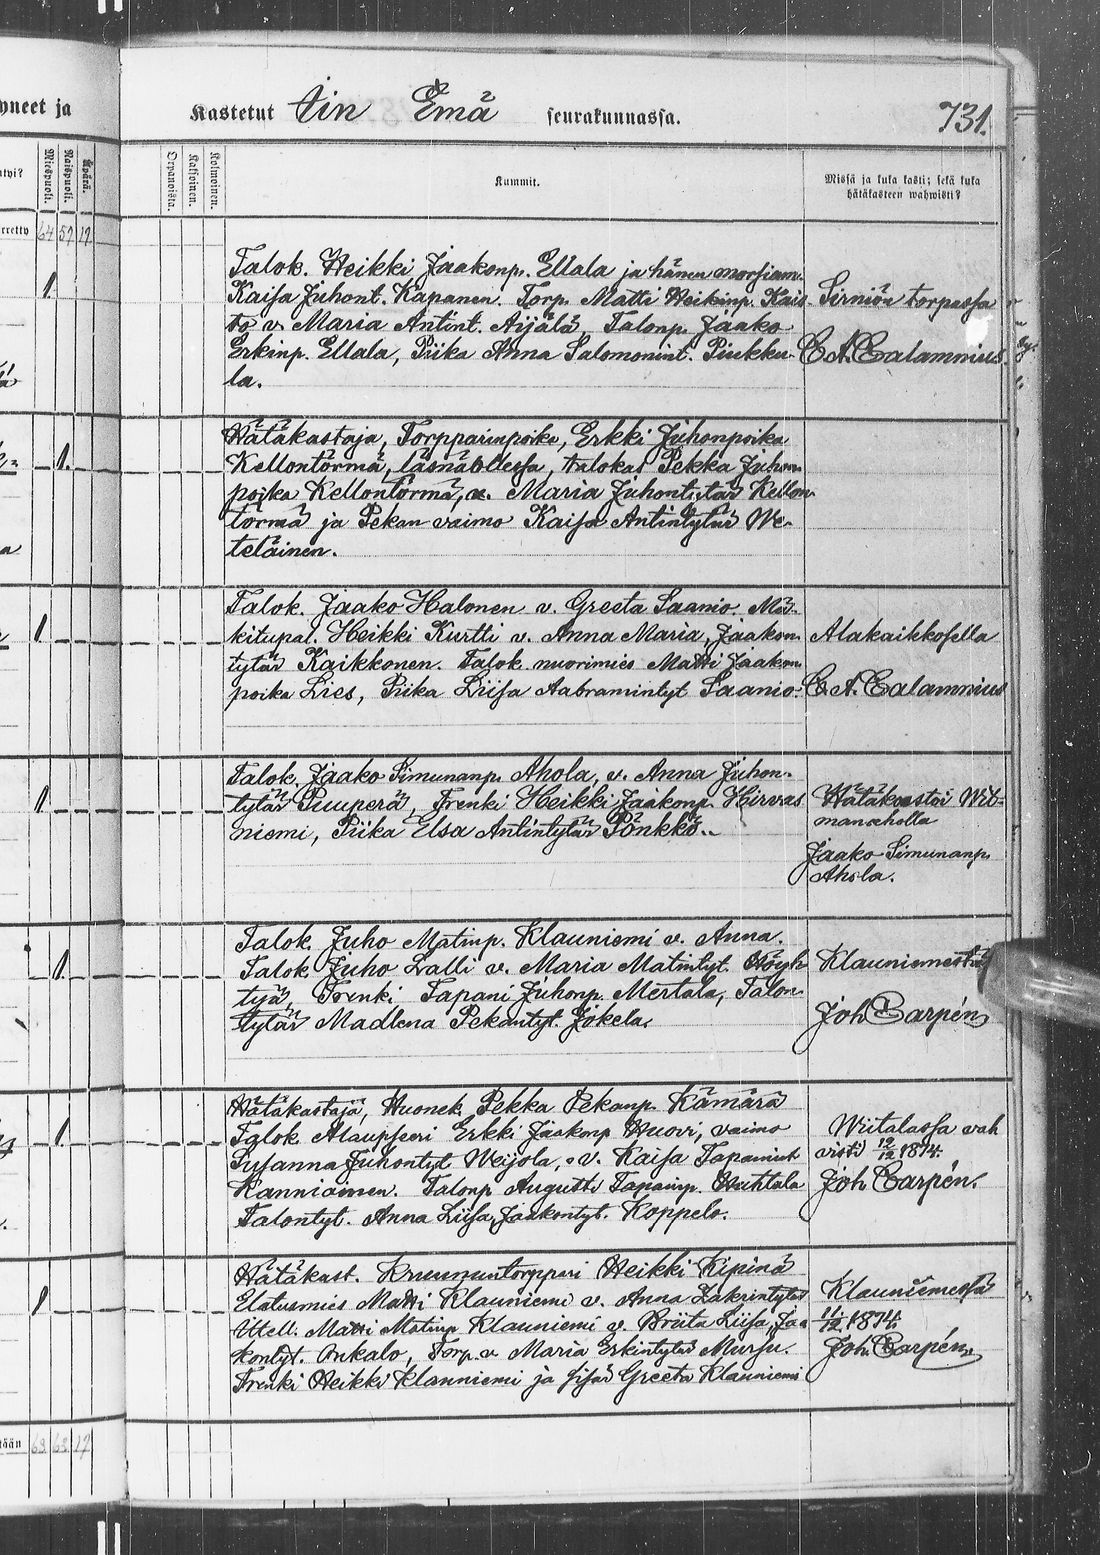 yneet ja
Kastetut Iin Emä seurakunnassa.
731.
Miespuoli. Vaispuoli. Äpärä.
Orpanoista. Kaksoinen. Kolmoinen.
Kummit.
Missä ja kuka kasti; sekä kuka
hätäkasteen wahwisti?
rretty 64 57 17
Talok. Heikki Jaakonp. Ellala ja hänen morsiam.
Kaisa Juhont. Kapanen. Torp. Matti Heikinp. Kais-
to v. Maria Antint. Äijälä, Talonp. Jaako
Erkinp. Ellala, Piika Anna Salomonint. Pinkku-
la.
Sirniön torpassa
C. A. Calamnius.
1
Hätäkastaja, Torpparinpoika, Erkki Juhonpoika
Kellontörmä, läsnäollessa, talokas Pekka Juhon
poika Kellontörmä, v. Maria Juhontytär Kellon
törmä ja Pekan vaimo Kaisa Antintytär We-
teläinen.
1
Talok. Jaako Halonen v. Greeta Saanio. Mä-
kitupal. Heikki Kurtti v. Anna Maria, Jaakon
tytär Kaikkonen. Talok. nuorimies Matti Jaakon
poika Lies, Piika Liisa Aabramintyt Saanio.
Alakaikkosella
C. A. Calamnius
1
Talok. Jaako Simunanp. Ahola, v. Anna Juhon-
tytär Puuperä, Trenki Heikki Jaakonp. Hirvas
niemi, Piika Elsa Antintytär Pönkkö..
Hätäkastoi
Jaako Simunanp.
Ahola.
1
Talok. Juho Matinp. Klauniemi v. Anna.
Talok. Juho Lalli v. Maria Matintyt. Höyh
tyä, Trenki Tapani Juhonp. Mertala, Talon
tytär Madlena Pekantyt. Jokela.
Joh. Carpén
1
Hätäkastaja, Huonek. Pekka Pekanp. Kämärä
Talok. Alaupseeri Erkki Jaakonp Huovi, vaimo
Susanna Juhontyt Weijola, v. Kaisa Tapanint
Kanniainen. Talonp Augusti Tapanip. Huhtala
Talontyt. Anna Liisa Jaakontyt. Koppelo.
Wiitalassa vah
visti 12/12 1874.
Joh. Carpén.
1
Hätäkast. Kruununtorppari Heikki Kipinä
Elatusmies Matti Klauniemi v. Anna Zakrintytär
Itsell. Matti Matinp Klauniemi v. Briita Liisa, Jaa
kontyt. Onkalo, Torp. v. Maria Erkintytär Mursu.
Trenki Heikki Klauniemi ja sisar Greeta Klauniemi
Klauniemessä
11/12 1874.
Joh. Carpén.
1
tään 69 63 17